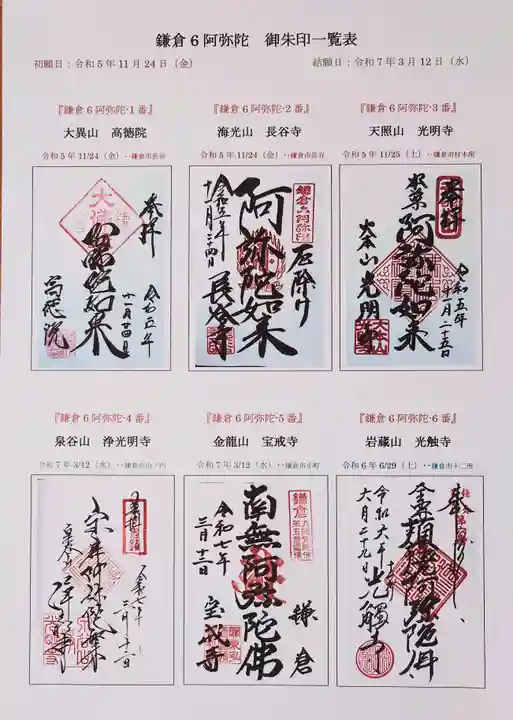 鎌倉6阿弥陀 御朱印一覧表
初願日：令和5年11月24日（金） 結願日：令和7年3月12日（水）
『鎌倉6阿弥陀-1番』
大異山 高徳院
令和5年 11/24（金）‥鎌倉市長谷
奉拝
令和五年
十一月二十四日
高徳院
『鎌倉6阿弥陀-2番』
海光山 長谷寺
令和5年 11/24（金）‥鎌倉市長谷
鎌倉六阿弥陀
厄除け
阿弥陀如来
令和五年
十一月二十四日
長谷寺
『鎌倉6阿弥陀-3番』
天照山 光明寺
令和5年 11/25（土）‥鎌倉市材木座
奉拝
阿弥陀如来
大本山光明寺
令和五年
十一月二十五日
『鎌倉6阿弥陀-4番』
泉谷山 浄光明寺
令和7年 3/12（水）‥鎌倉市
『鎌倉6阿弥陀-5番』
金龍山 宝戒寺
令和7年 3/12（水）‥鎌倉市小町
鎌倉
南無阿弥陀佛
令和七年
三月十二日
宝戒寺
『鎌倉6阿弥陀-6番』
岩蔵山 光触寺
令和6年 6/29（土）‥鎌倉市十二所
奉
頬焼阿弥陀
令和六年
六月二十九日
光触寺